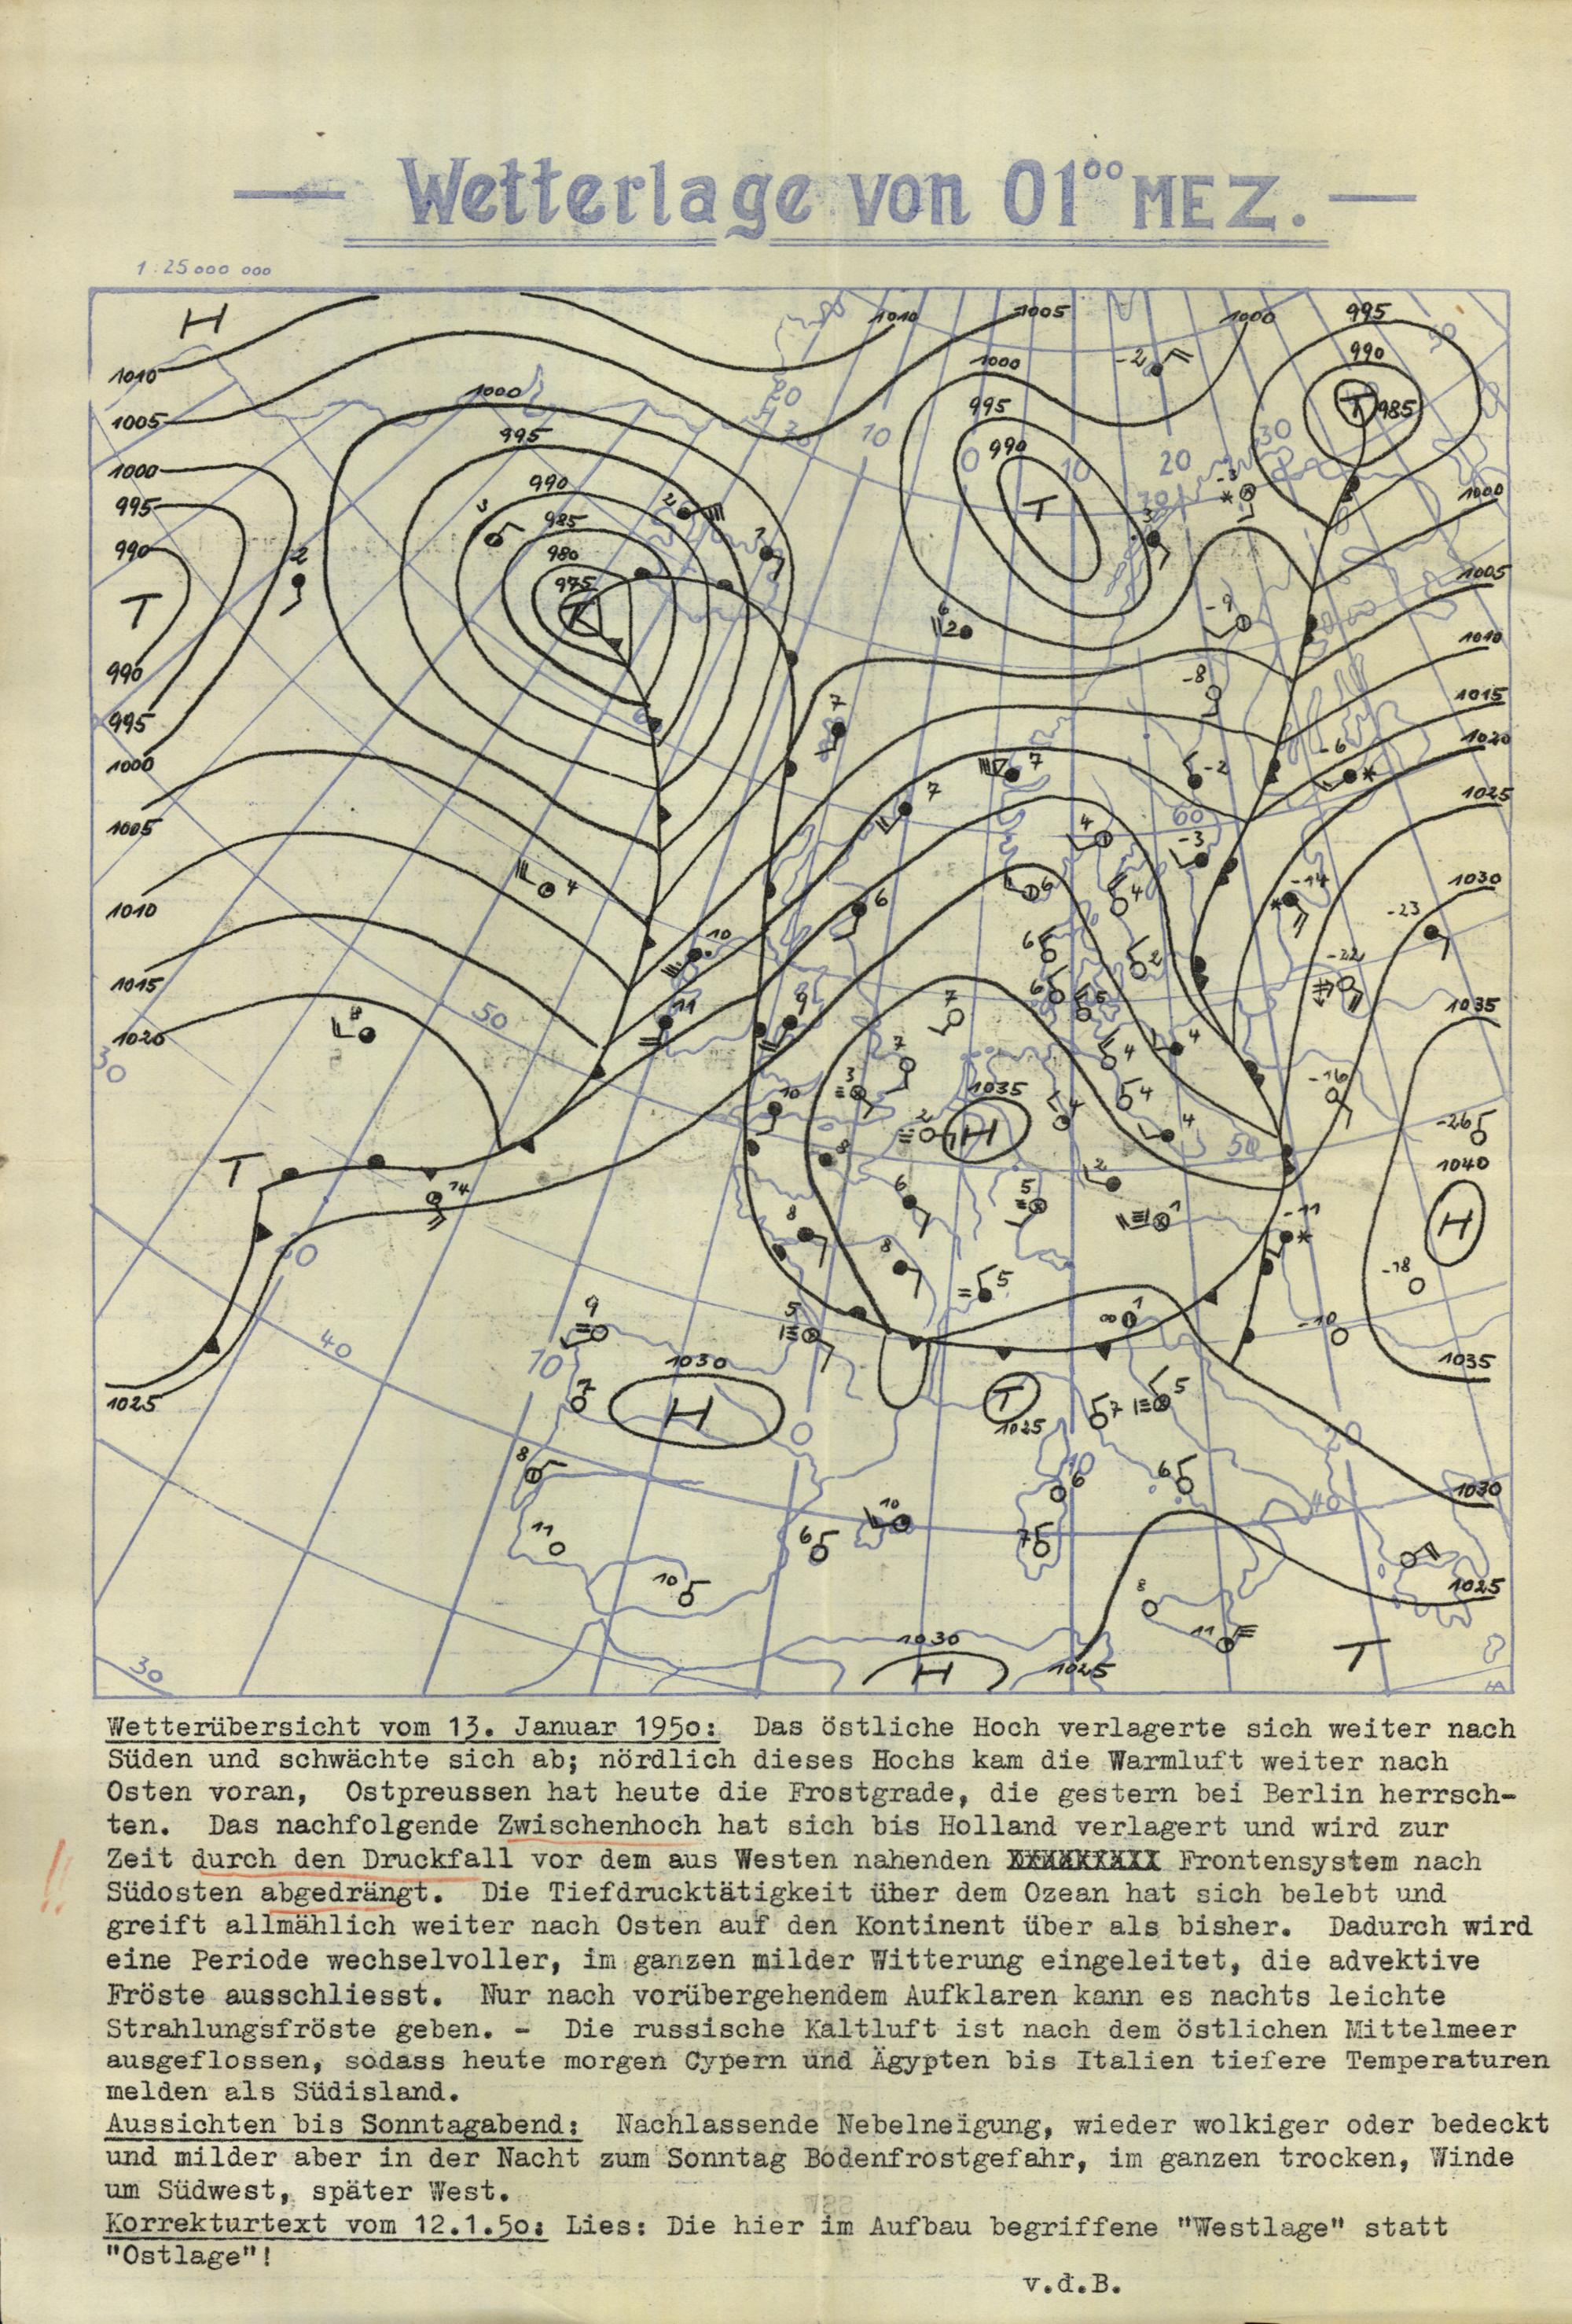 Wetterlage von 01⁰⁰ MEZ.
1:25 000 000
H
1010
1005
1000
1010
1005
1000
995
990
T
985
1000
995
990
985
980
975
T
1000
995
990
T
1000
995
990
T
990
995
1000
1005
1010
1015
1020
1025
1000
1005
1010
1015
1020
1025
1030
1035
1040
H
1035
1030
1025
T
1035
H
1030
H
T
1025
T
1030
H
1025
20
10
0
10
20
30
70
60
50
50
30
40
10
0
10
40
30
Wetterübersicht vom 13. Januar 195o: Das östliche Hoch verlagerte sich weiter nach
Süden und schwächte sich ab; nördlich dieses Hochs kam die Warmluft weiter nach
Osten voran, Ostpreussen hat heute die Frostgrade, die gestern bei Berlin herrsch-
ten. Das nachfolgende Zwischenhoch hat sich bis Holland verlagert und wird zur
!! Zeit durch den Druckfall vor dem aus Westen nahenden XXXXXXXXX Frontensystem nach
Südosten abgedrängt. Die Tiefdrucktätigkeit über dem Ozean hat sich belebt und
greift allmählich weiter nach Osten auf den Kontinent über als bisher. Dadurch wird
eine Periode wechselvoller, im ganzen milder Witterung eingeleitet, die advektive
Fröste ausschliesst. Nur nach vorübergehendem Aufklaren kann es nachts leichte
Strahlungsfröste geben. - Die russische Kaltluft ist nach dem östlichen Mittelmeer
ausgeflossen, sodass heute morgen Cypern und Ägypten bis Italien tiefere Temperaturen
melden als Südisland.
Aussichten bis Sonntagabend: Nachlassende Nebelneigung, wieder wolkiger oder bedeckt
und milder aber in der Nacht zum Sonntag Bodenfrostgefahr, im ganzen trocken, Winde
um Südwest, später West.
Korrekturtext vom 12.1.5o: Lies: Die hier im Aufbau begriffene "Westlage" statt
"Ostlage"!
v.d.B.